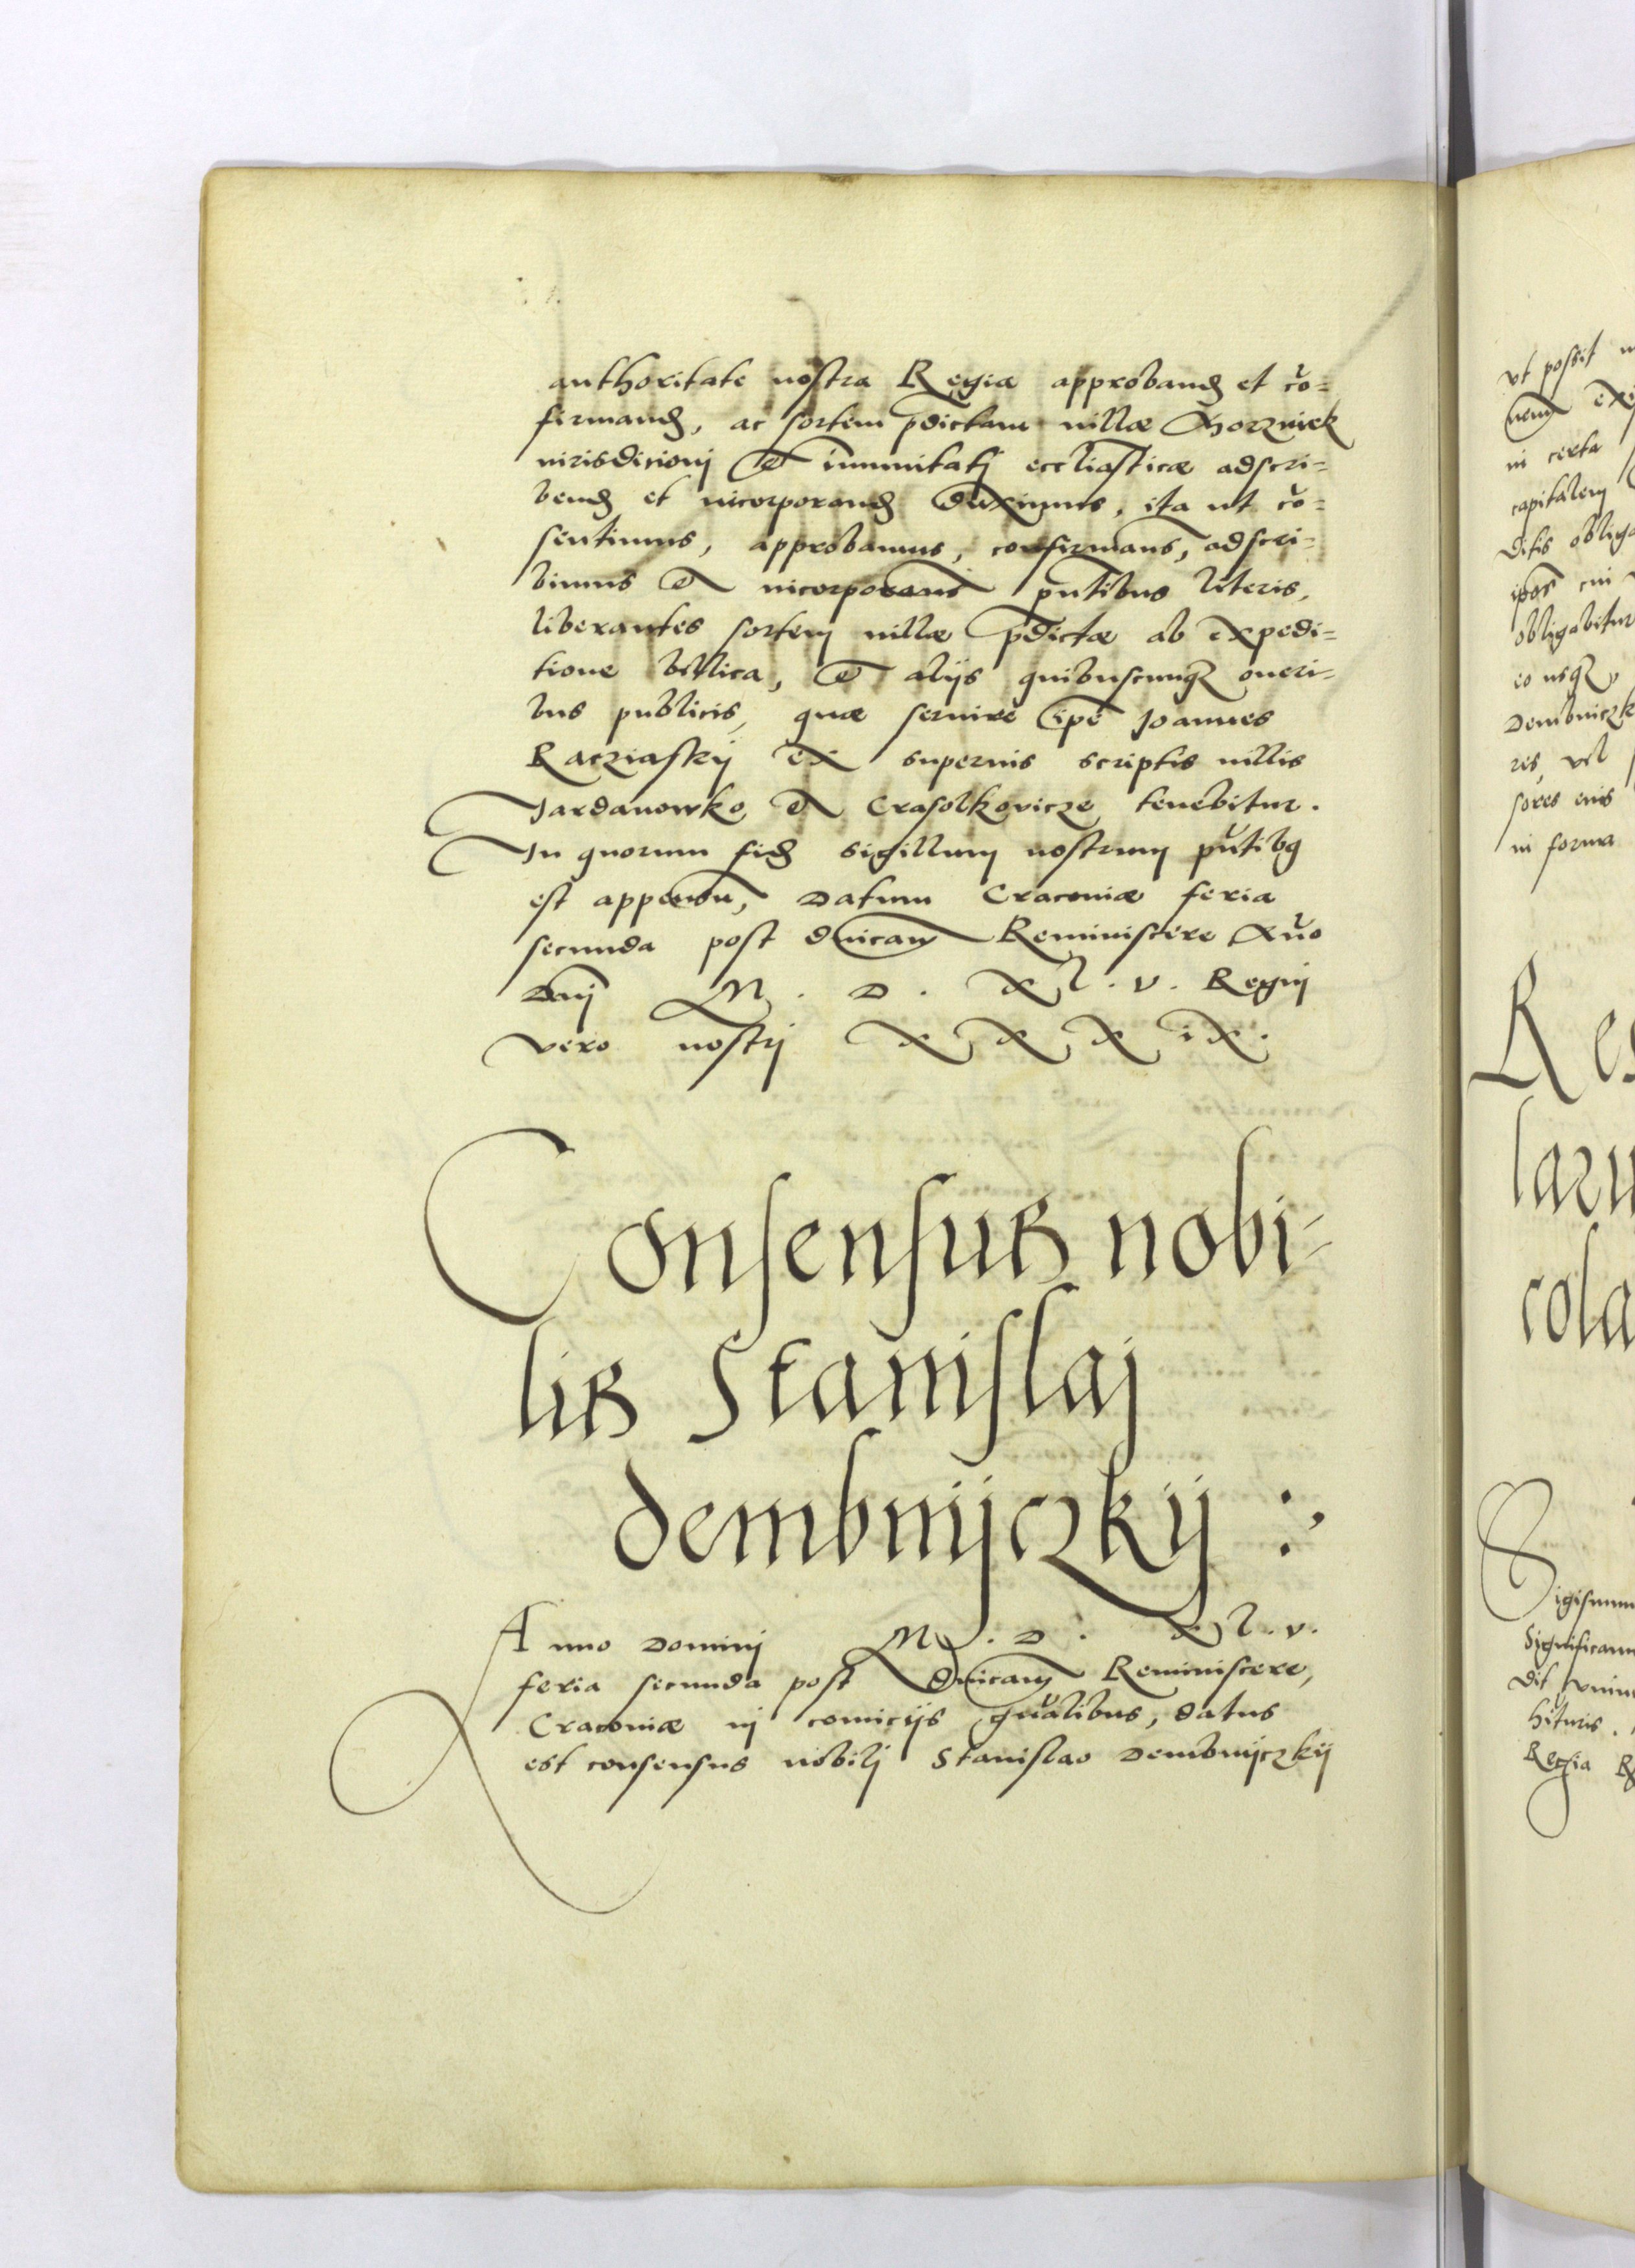 authoritate nostra Regia approband et cō=
firmand, ac sortem pdictam uillæ Chorzniek
iurisdicionj et immunitatj eccliasticæ adscri=
bend et incorporand duximus, ita ut cō=
sentimus, approbamus, confirmans, adscri=
bimus et incorporans pntibus literis,
liberantes sortem uillæ pdictæ ab expedi=
tione bellica, et alijs quibuscunqz oneri=
bus publicis, quæ seruire ipe Joannes
Racziaskij ex superius scriptis uillis
Jardanowko et Crasolkovicze tenebitur.
In quorum fid sigillum nostrum pntibq
est appensu, Datum Cracouiæ feria
secunda post dnicam Reminiscere Año
Dnj M. D. Xl. v. Regnj
vero nostrj X X X iX.
Consensus nobi-
lis Stanislaj
dembnijczkij :
Anno Dominj M. D. Xl. v.
feria secunda post dnicam Reminiscere,
Cracouiæ in comicijs gnalibus, datus
est consensus nobilj Stanislao Dembnijczkij
ut possit
in certa
capitalem
ditis obliga
obligabitur
eo usqz,
Dembniczk
res, vel
sores eius
in forma
Res
laru
cola
Sigismun
Significam
hituris.
Regia